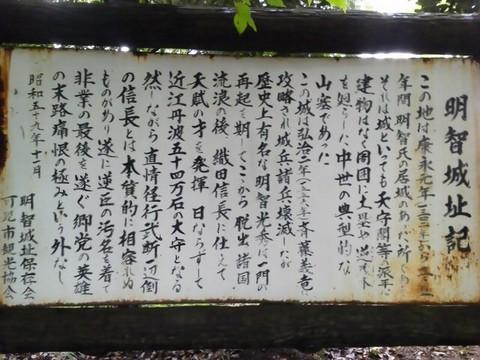 明智城址記
この地は康永元年
年間 明智氏の居城のあった所
それは城といっても天守閣等の派手な
建物はなく周囲に土塁
を廻らした中世の典型的な
山塞であった
この城は弘治二年 斉藤義竜に
攻略され城兵諸共壊滅したが
歴史上有名な明智光秀は一門の
再起を期してここから脱出 諸国
流浪の後 織田信長に仕えて
天賦の才を発揮 日ならずして
近江丹波五十四万石の大守となる
然しながら直情径行武断一辺倒
の信長とは本質的に相容れぬ
ものがあり遂に逆臣の汚名を着て
非業の最後を遂ぐ郷党の英雄
の末路痛恨の極みという外なし
昭和五十九年十一月
明智城址保存会
可児市観光協会